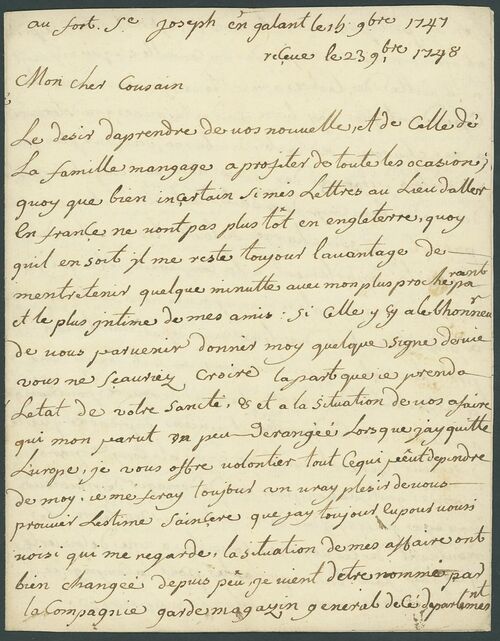 au fort. St. Joseph en galant le 15 9bre 1747
reçeue le 23 9.bre 1748
Mon cher Cousain
Le desir daprendre de vos nouvelle, et de Celle dé
La famille mangage a profiter de toute les ocasion;
quoy que bien inçertain si mes Lettres au Lieu daller
En françe ne vont pas plus tôt en engleterre, quoy
quil en soit jl me reste toujour lauantage de
mentretenir quelque minutte auec mon plus proche parant
et le plus jntime de mes amis: Si Celle y çy a le lhonneur
de vous paruenir donner moy quelque signe de vie
vous ne Sçauriez Croire la part que je prend a
Letat de vôtre Santé, & et a la Situation de vos afaire
qui mon parut un peu derangéé Lorsque jay quitte
Lurope, je vous ofre volontier tout Cequi peut dependre
de moy. je me feray toujour un vray plesir de vous
prouuer Lestime Sainçere que jay toujour Eu pour vous
voisi qui me regarde, la situation de mes affaire ont
bien changéé depuis peu, je vient detre nommé par
la Compagnie garde magazin general de Cé departement